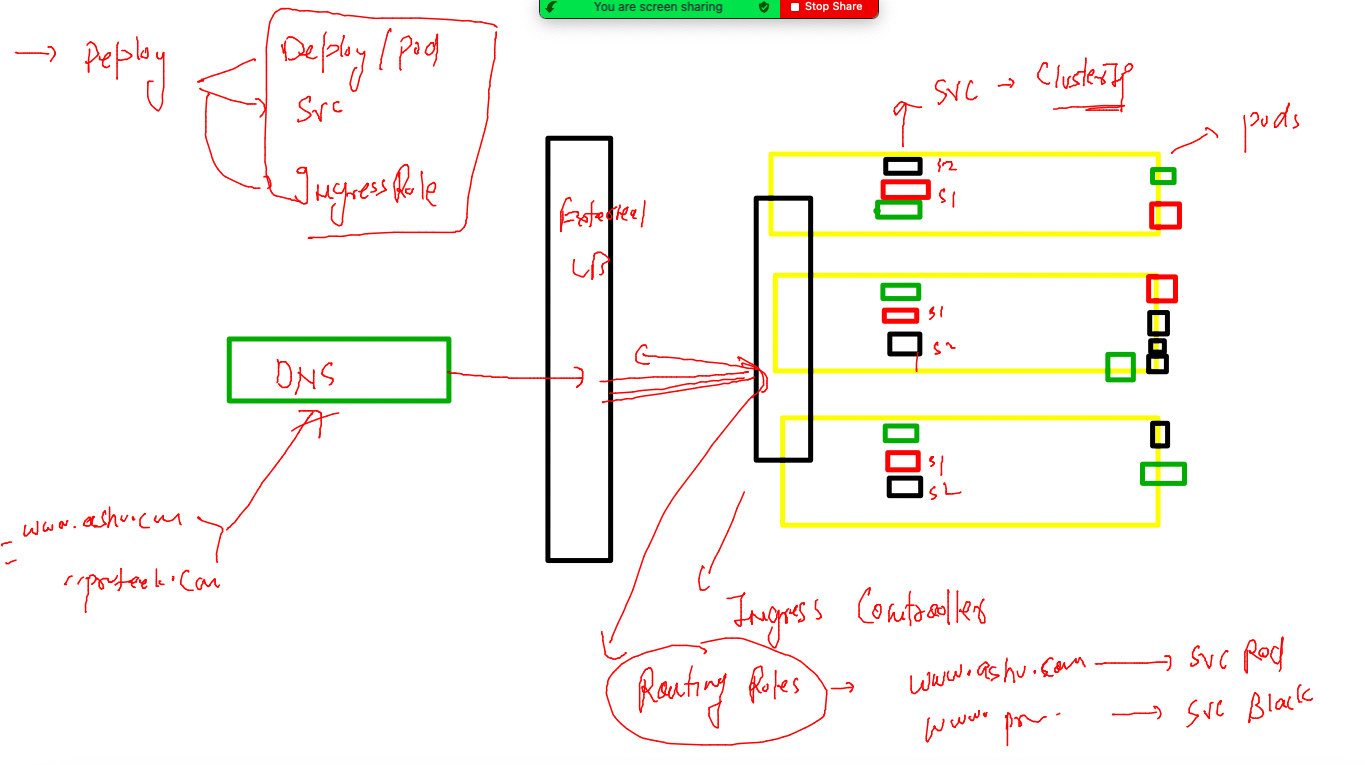 You are screen sharing
Stop Share
→ Deploy
Deploy/pod
Svc
IngressRule
SVC → ClusterIP
pods
S2
S1
External
LB
S1
S2
DNS
S1
S2
www.ashu.com
Ingress Controller
Routing Rules → www.ashu.com → SVC Red
www. pr → SVC Black